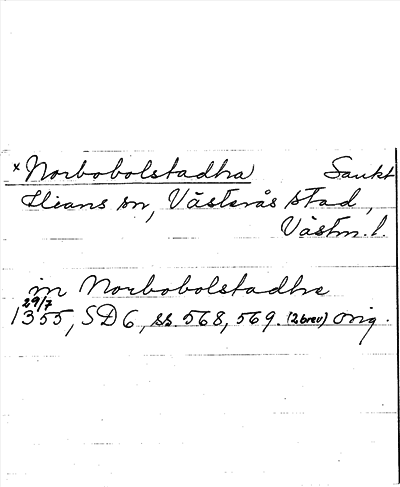 x Norbobolstadha Sankt
Ilians sn, Västerås stad,
Västm. l.
in Norbobolstadhe
29/7
1355, SD 6, ss. 568, 569. (2 brev) orig.